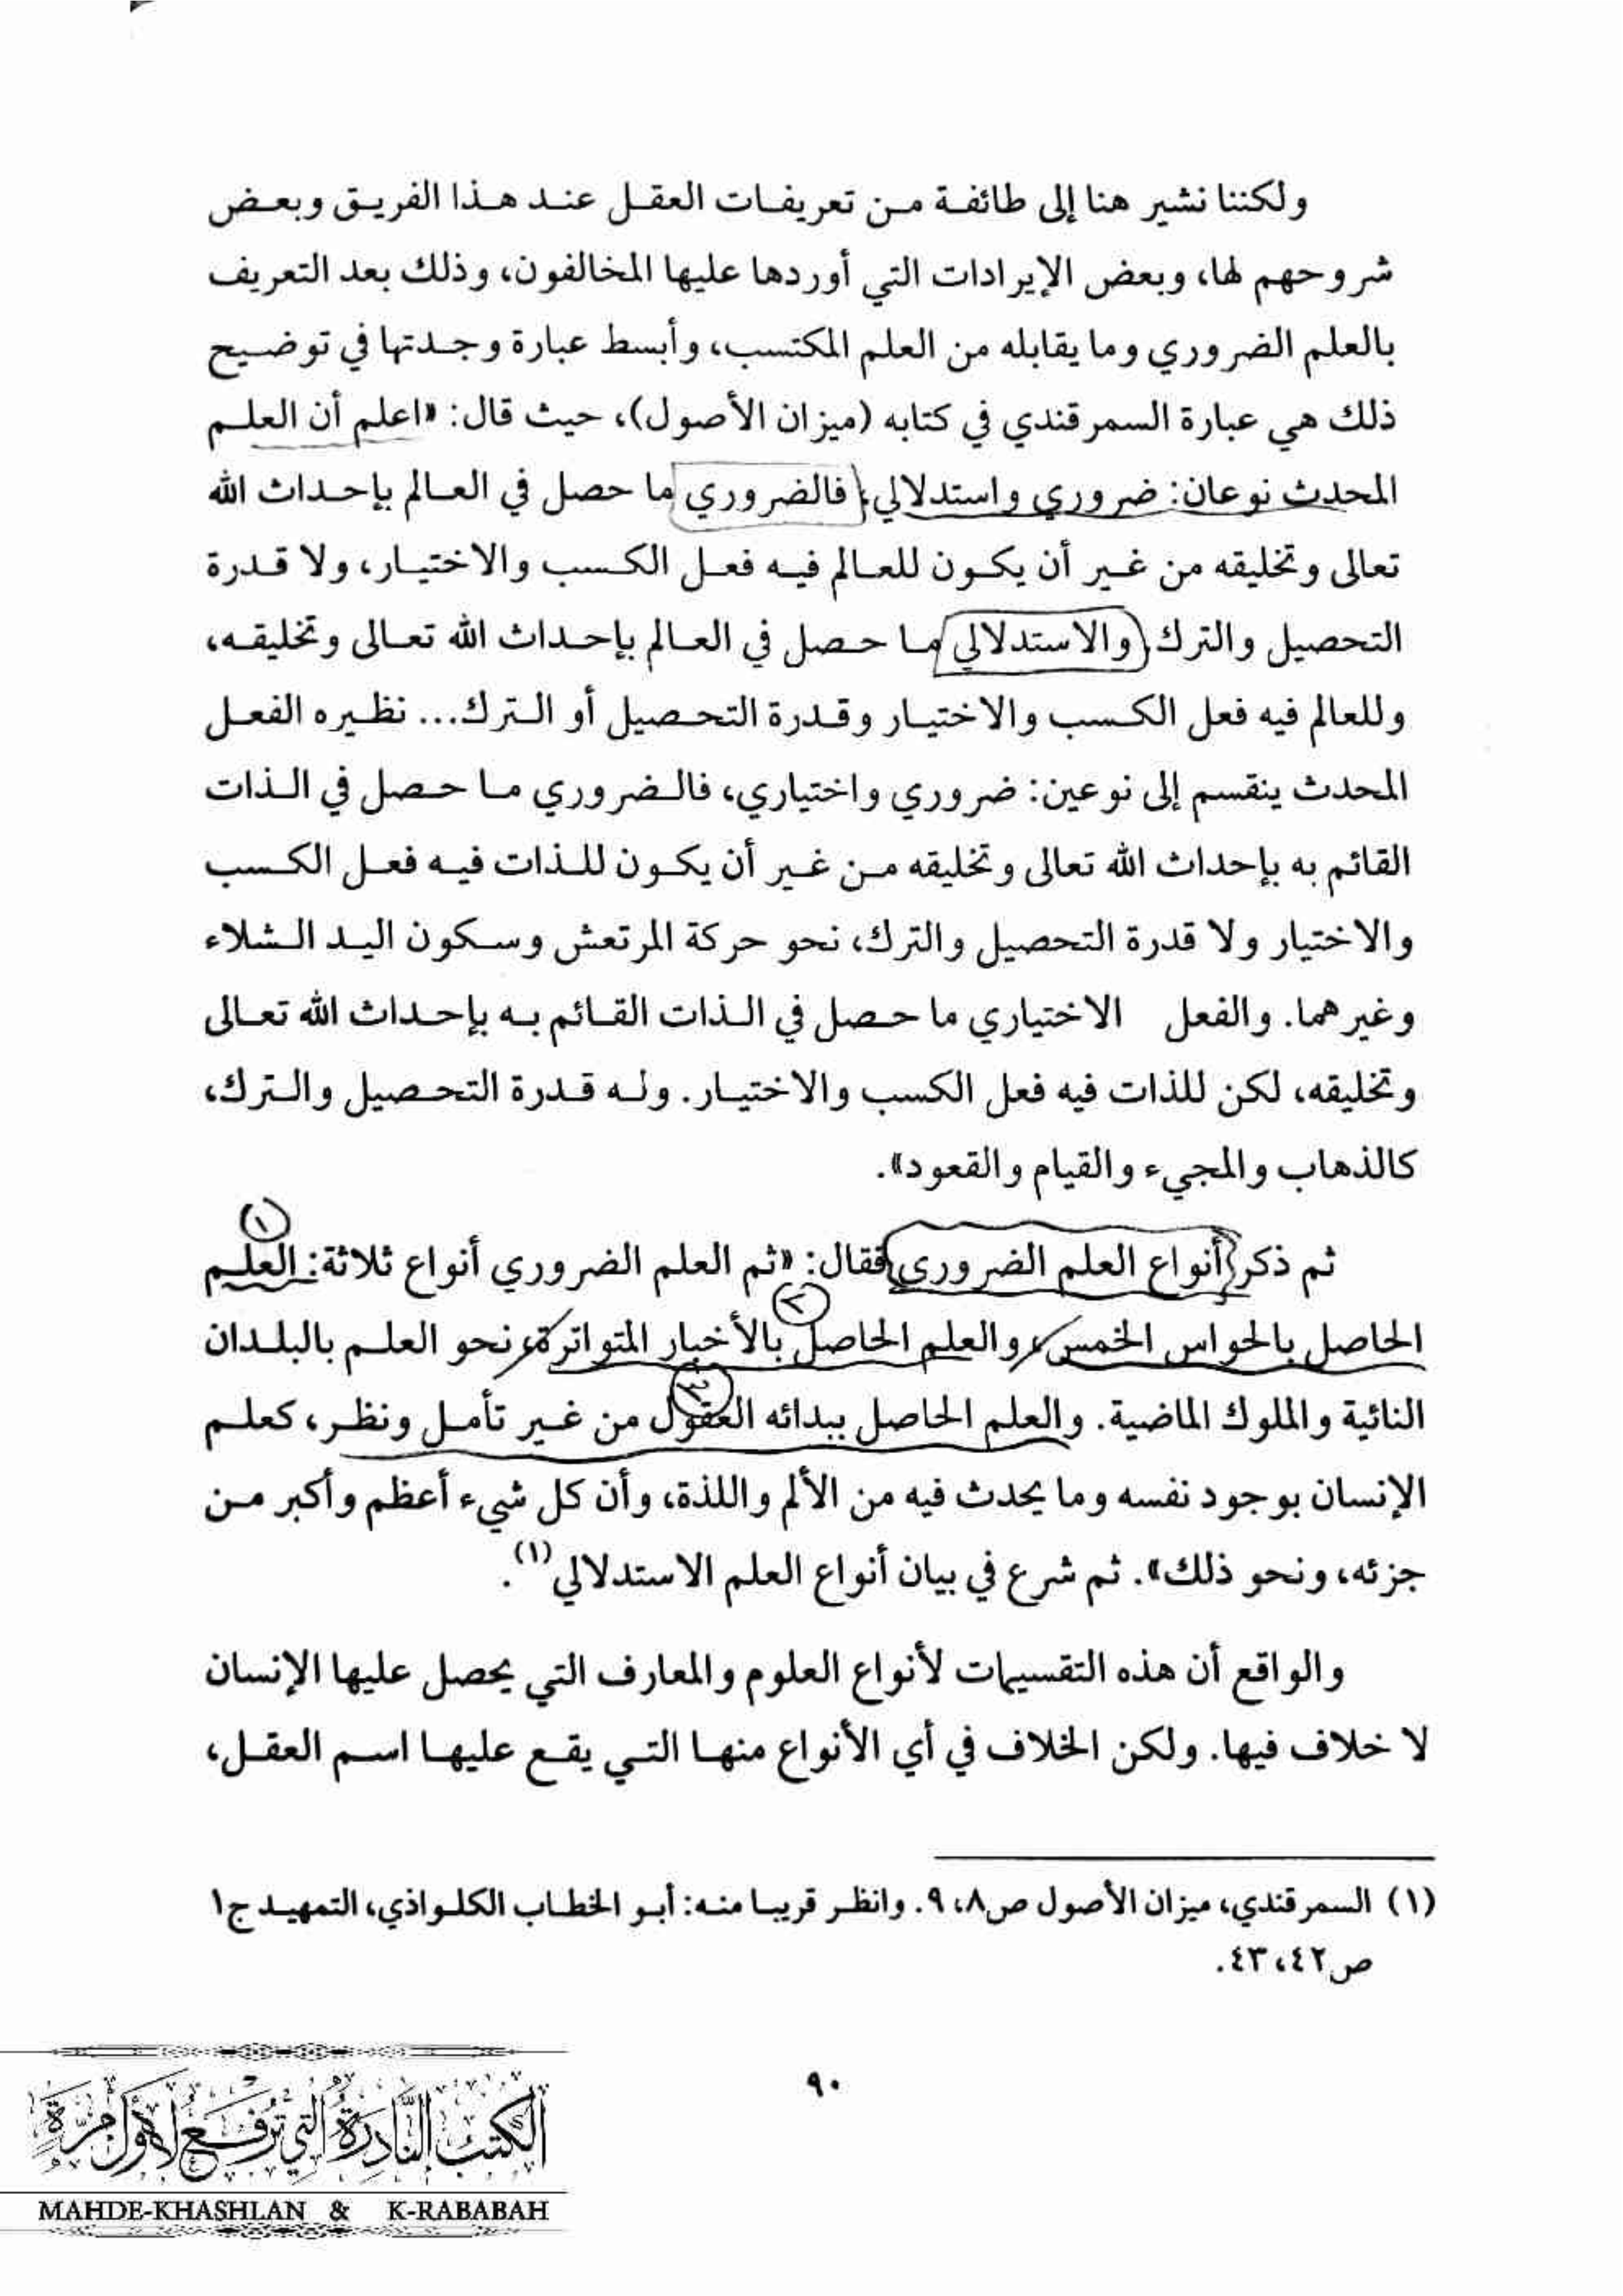 ولكننا نشير هنا إلى طائفة من تعريفات العقل عند هذا الفريق وبعض
شروحهم لها، وبعض الإيرادات التي أوردها عليها المخالفون، وذلك بعد التعريف
بالعلم الضروري وما يقابله من العلم المكتسب، وأبسط عبارة وجدتها في توضيح
ذلك هي عبارة السمرقندي في كتابه (ميزان الأصول)، حيث قال: «اعلم أن العلم
المحدث نوعان: ضروري واستدلالي، فالضروري ما حصل في العالم بإحداث الله
تعالى وتخليقه من غير أن يكون للعالم فيه فعل الكسب والاختيار، ولا قدرة
التحصيل والترك. والاستدلالي ما حصل في العالم بإحداث الله تعالى وتخليقه،
وللعالم فيه فعل الكسب والاختيار وقدرة التحصيل أو الترك... نظيره الفعل
المحدث ينقسم إلى نوعين: ضروري واختياري، فالضروري ما حصل في الذات
القائم به بإحداث الله تعالى وتخليقه من غير أن يكون للذات فيه فعل الكسب
والاختيار ولا قدرة التحصيل والترك، نحو حركة المرتعش وسكون اليد الشلاء
وغيرهما. والفعل الاختياري ما حصل في الذات القائم به بإحداث الله تعالى
وتخليقه، لكن للذات فيه فعل الكسب والاختيار. وله قدرة التحصيل والترك،
كالذهاب والمجيء والقيام والقعود».
١
ثم ذكر أنواع العلم الضروري فقال: «ثم العلم الضروري أنواع ثلاثة: العلم
٢
الحاصل بالحواس الخمس، والعلم الحاصل بالأخبار المتواترة، نحو العلم بالبلدان
٣
النائية والملوك الماضية. والعلم الحاصل ببدائه العقول من غير تأمل ونظر، كعلم
الإنسان بوجود نفسه وما يحدث فيه من الألم واللذة، وأن كل شيء أعظم وأكبر من
جزئه، ونحو ذلك». ثم شرع في بيان أنواع العلم الاستدلالي(١).
والواقع أن هذه التقسيمات لأنواع العلوم والمعارف التي يحصل عليها الإنسان
لا خلاف فيها. ولكن الخلاف في أي الأنواع منها التي يقع عليها اسم العقل،
(١) السمرقندي، ميزان الأصول ص٨، ٩. وانظر قريبا منه: أبو الخطاب الكلواذي، التمهيد ج١
ص٤٢، ٤٣.
٩٠
الكتب النادرة التي ترفع لأول مرة
MAHDE-KHASHLAN & K-RABABAH